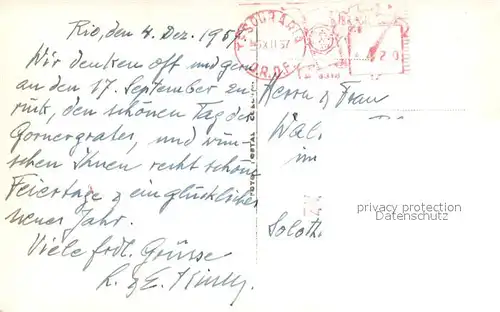 Rio, den 4. Dez. 195
Wir denken oft und gern
an den 17. September zu-
rück, den schönen Tag des
Gornergrates, und wün-
schen Ihnen recht schöne
Feiertage & ein glückliches
neues Jahr.
Viele frdl. Grüsse
L. & E.
FOTO POSTAL COLOMBO
XII 57
20
Herrn & Frau
Wal
im
Soloth
privacy protection
Datenschutz